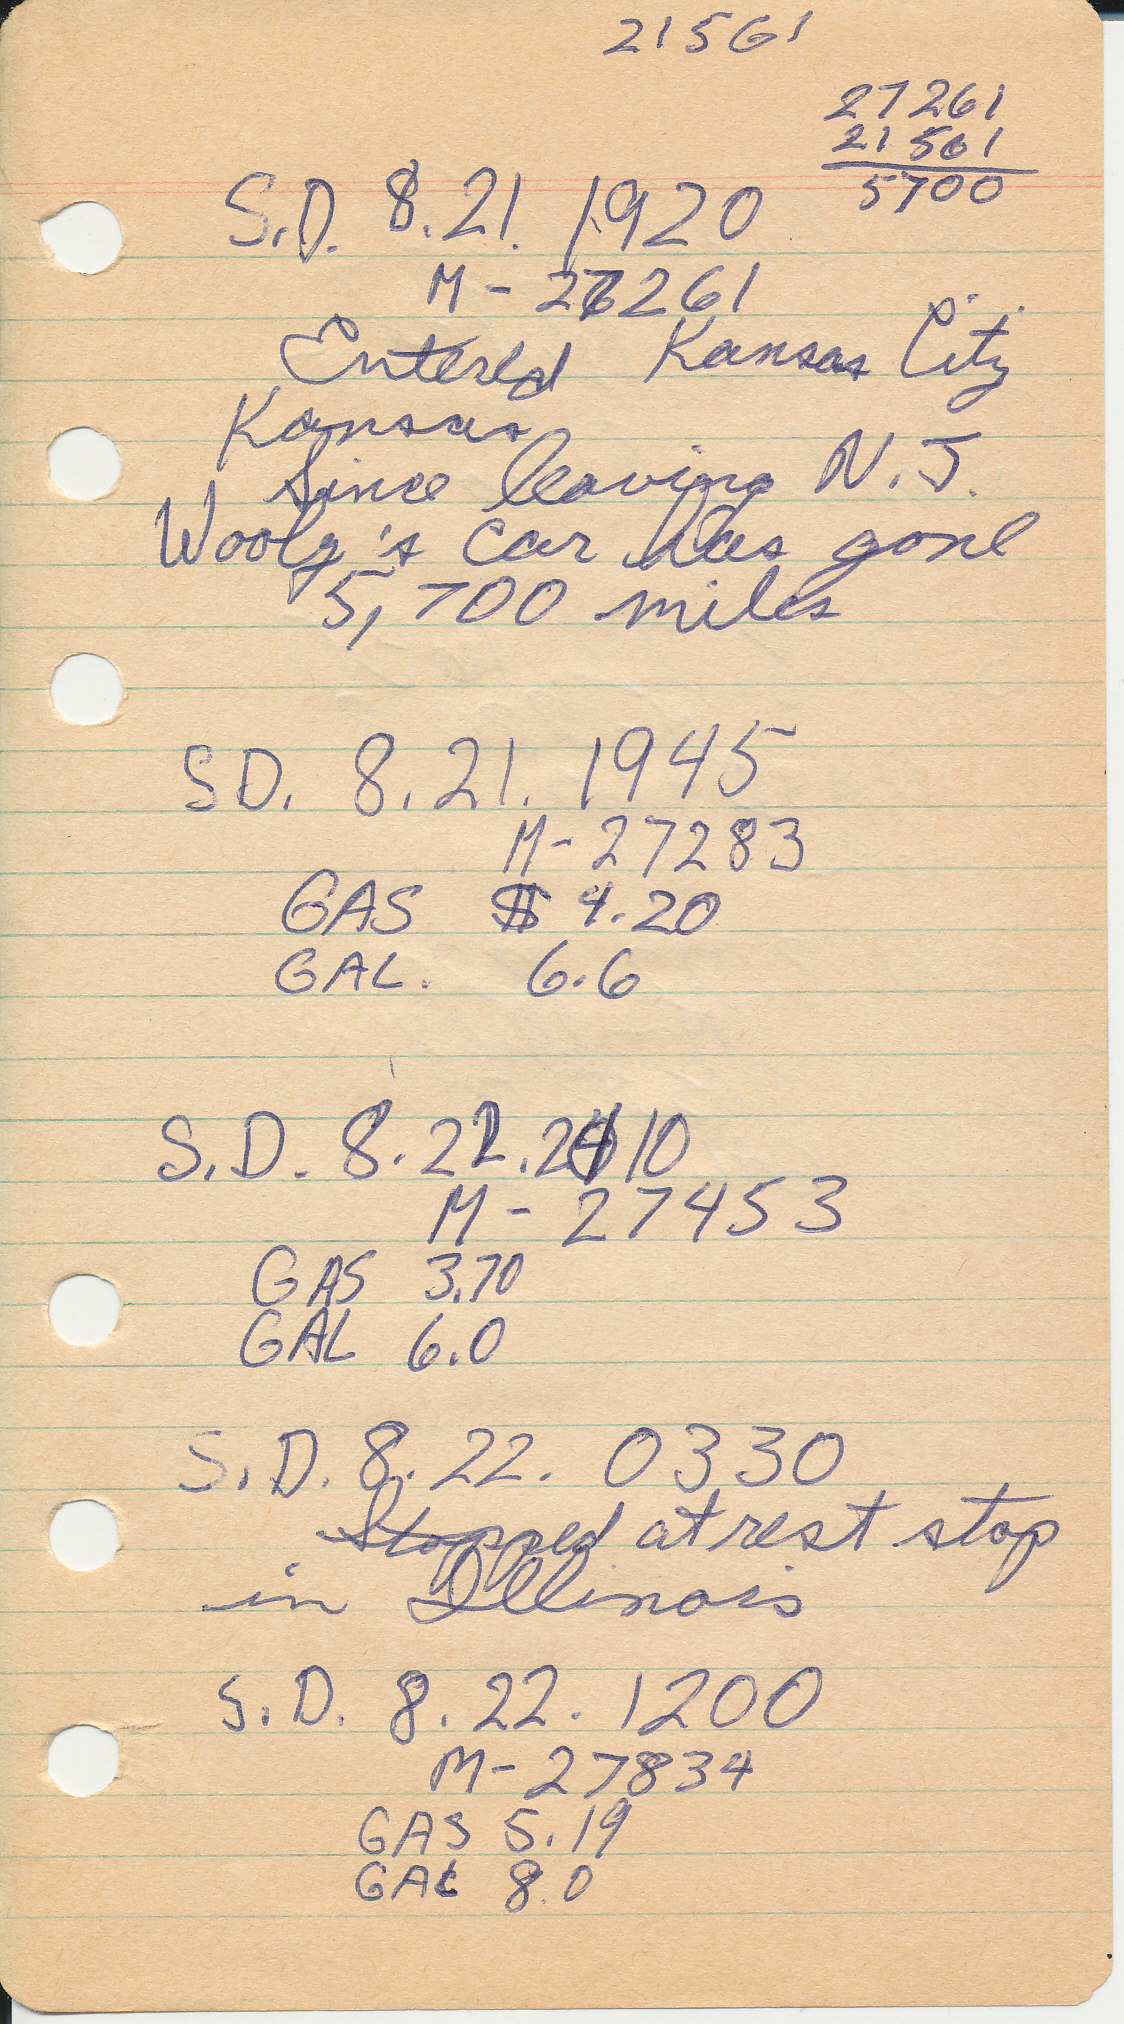 21561
27261
21561
5700
S.D. 8.21. 1920
M - 27261
Entered Kansas City
Kansas
Since leaving N.J.
Wooly's car has gone
5,700 miles
SD. 8.21. 1945
M - 27283
GAS $ 4.20
GAL. 6.6
S.D. 8.22.
M - 27453
GAS 3.70
GAL 6.0
S.D. 8.22. 0330
Stopped at rest stop
in Illinois
S.D. 8.22. 1200
M - 27834
GAS 5.19
GAL 8.0